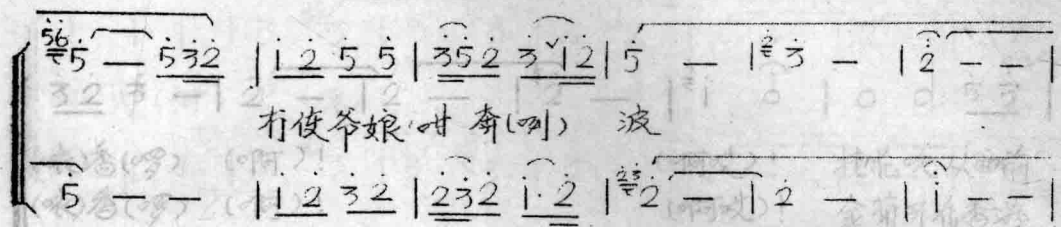 56 5 — 5 3 2 | 1 2 5 5 | 3 5 2 3 1 2 | 5 — | 2 3 — | 2 — — |
爷娘咁奔(咧) 波
5 — — | 1 2 3 2 | 2 3 2 1· 2 | 2 3 2 — | 2 — | 1 — — |